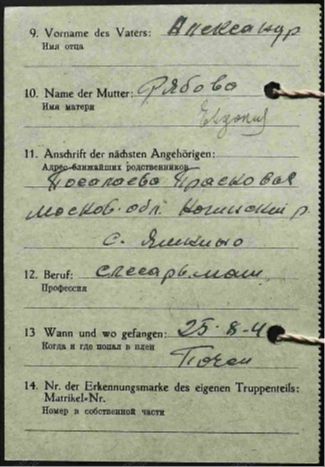 9. Vorname des Vaters: Александр
Имя отца
10. Name der Mutter: Рябова
Имя матери
11. Anschrift der nächsten Angehörigen:
Адрес ближайших родственников
Прасковья
Москов. обл. р.
с.
12. Beruf: слесарь. маш.
Профессия
13 Wann und wo gefangen: 25-8-4
Когда и где попал в плен
Почеп
14. Nr. der Erkennungsmarke des eigenen Truppenteils:
Matrikel-Nr.
Номер в собственной части